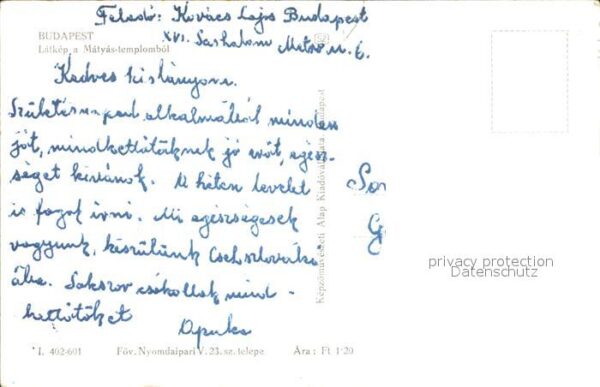 Feladó: Kovács Lajos Budapest
XVI. Sashalom Metró u. 6.
BUDAPEST
Látkép a Mátyás-templomból
Kedves kislányom.
Születésnapod alkalmából minden
jót, mindkettőtöknek jó erőt, egész-
séget kívánok. A héten levelet
is fogok írni. Mi egészségesek
vagyunk, készülünk Csehszlováki-
ába. Sokszor csókollak mind-
kettőtöket
Apuka
Képzőművészeti Alap Kiadóvállalata Budapest
privacy protection
Datenschutz
I. 402-601
Főv. Nyomdaipari V. 23. sz. telepe
Ára: Ft 1·20